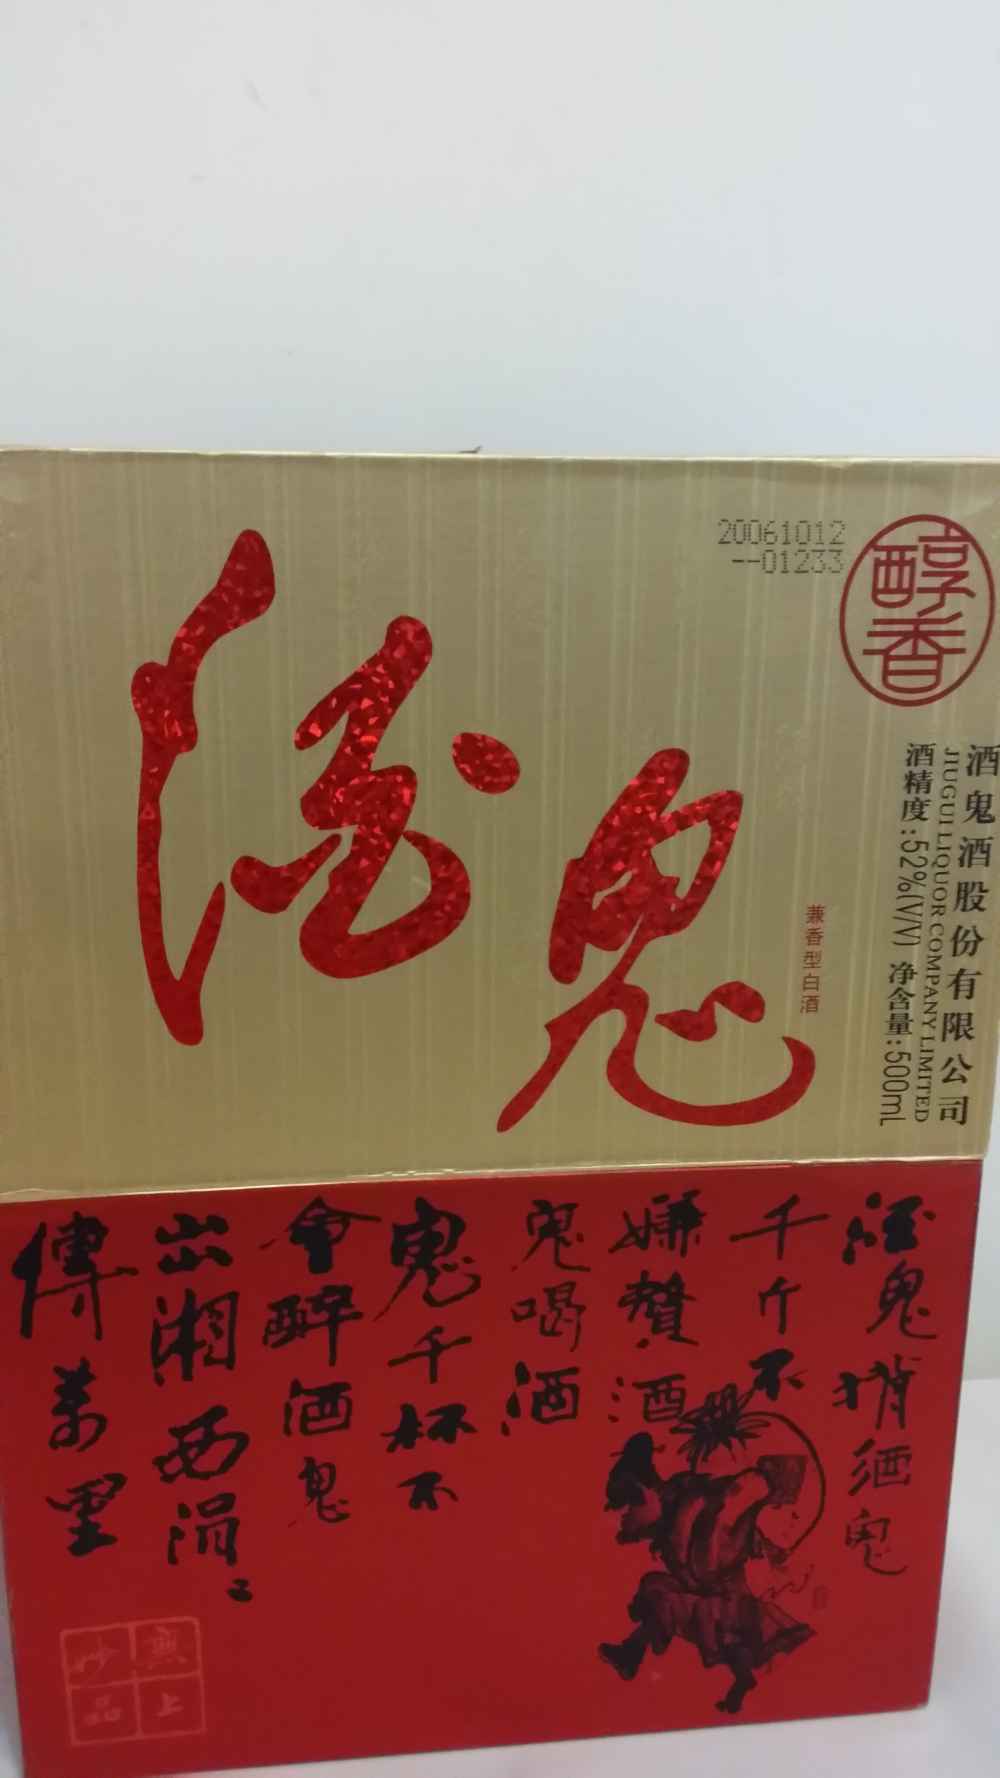 酒鬼
20061012
--01233
醇香
兼香型白酒
酒鬼酒股份有限公司
JIUGUI LIQUOR COMPANY LIMITED
酒精度:52%(V/V) 净含量:500mL
酒鬼揹酒鬼
千斤不
嫌贅酒
鬼喝酒
鬼千杯不
會醉酒鬼
出湘西涓〻
傳萬里
無上
妙品